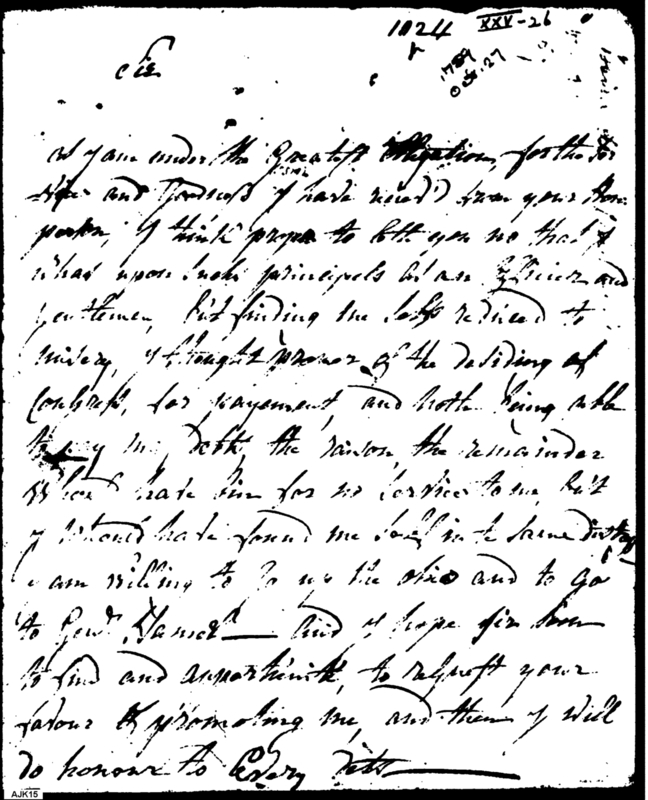 1024 XXV-26
1789
Oct. 27
Sir
as I am under the Greatest obligation, for the ser
and Goodness I have receiv'd from your Hon.
person, I think proper to lett you no that I
what upon such principels as an Officer and
gentlemen, but finding me self reduced to
misery, I thought proper of the desiding of
Congress, for payement, and noth being able
to pay my debts, the raison, the remainder
have him for no service to me, but
I should have found me self in the same distress
I am willing to up the and to go
to Genl. And I hope sir soon
to find and apportunité, to request your
favour of promoting me, and then I will
do honour to Every Debt
AJK15